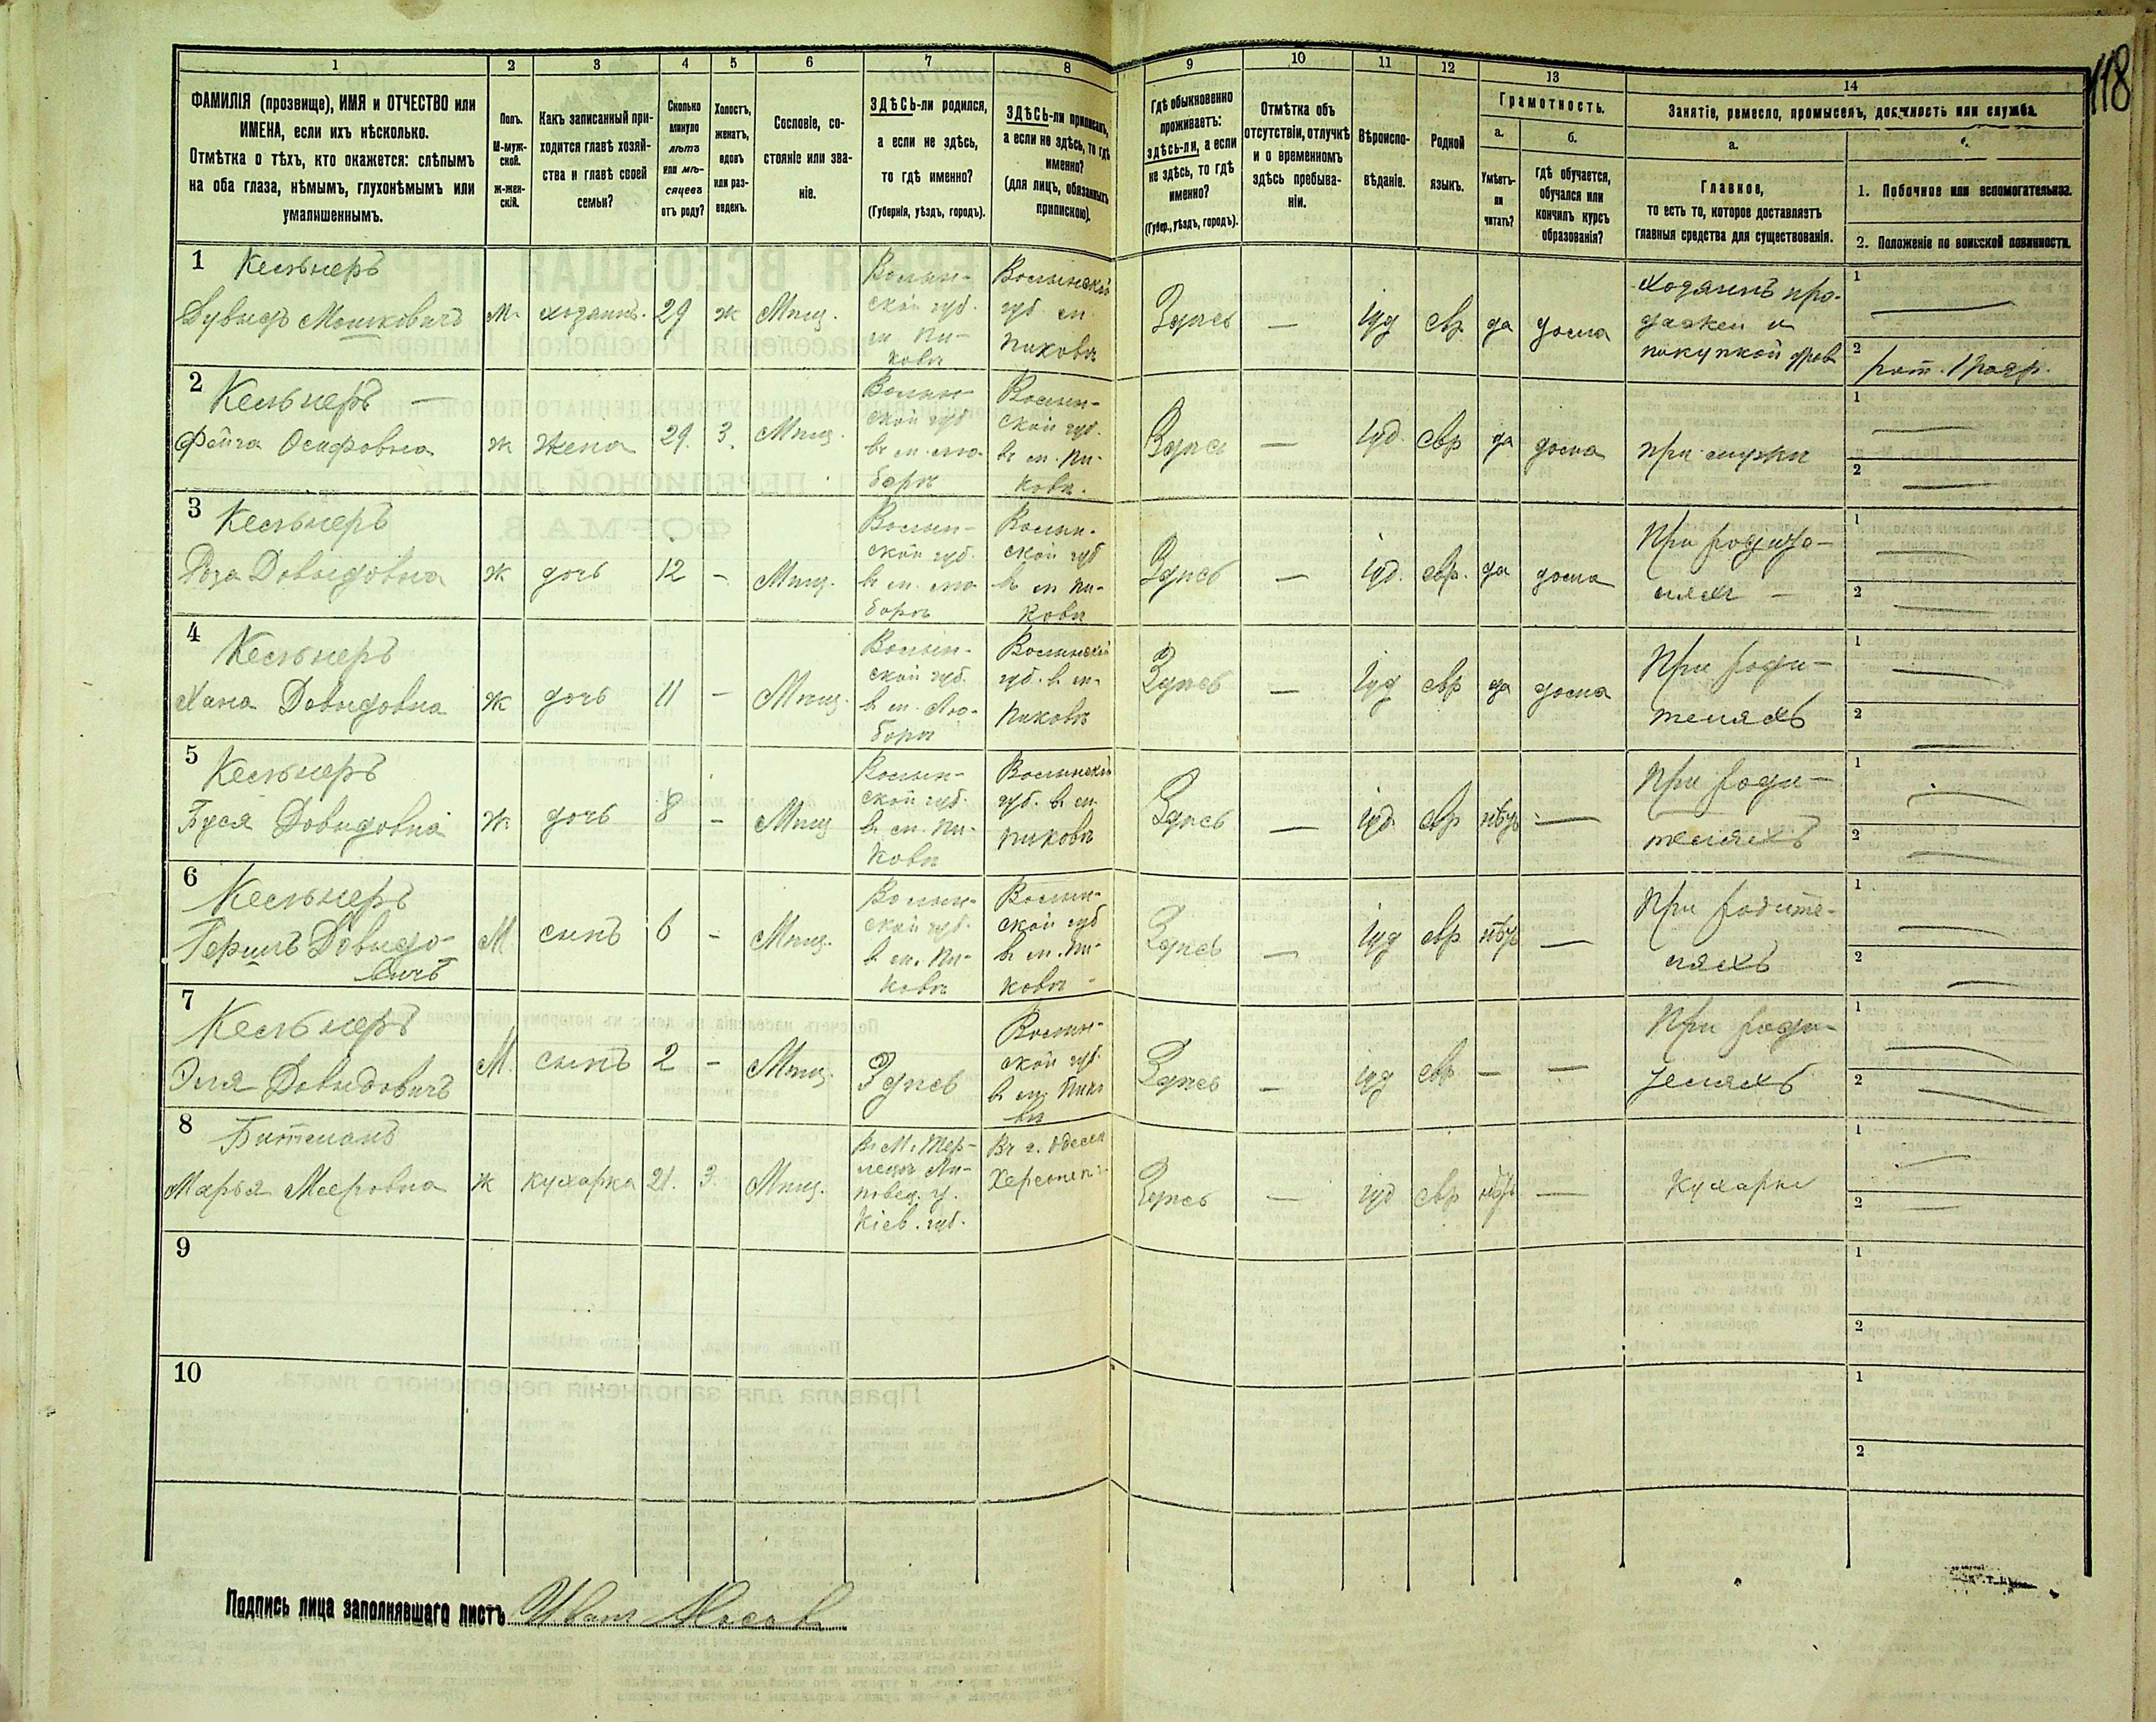 118
1
2
3
4
5
6
7
8
9
10
11
12
13
14
ФАМИЛІЯ (прозвище), ИМЯ и ОТЧЕСТВО или
ИМЕНА, если ихъ нѣсколько.
Отмѣтка о тѣхъ, кто окажется: слѣпымъ
на оба глаза, нѣмымъ, глухонѣмымъ или
умалишеннымъ.
Полъ.
М-муж-
ской.
ж-жен-
скій.
Какъ записанный при-
ходится главѣ хозяй-
ства и главѣ своей
семьи?
Сколько
минуло
лѣтъ
или мѣ-
сяцевъ
отъ роду?
Холостъ,
женатъ,
вдовъ
или раз-
веденъ.
Сословіе, со-
стояніе или зва-
ніе.
ЗДѢСЬ-ли родился,
а если не здѣсь,
то гдѣ именно?
(Губернія, уѣздъ, городъ).
ЗДѢСЬ-ли приписанъ,
а если не здѣсь, то гдѣ
именно?
(для лицъ, обязанныхъ
припискою).
Гдѣ обыкновенно
проживаетъ:
здѣсь-ли, а если
не здѣсь, то гдѣ
именно?
(Губер., уѣздъ, городъ).
Отмѣтка объ
отсутствіи, отлучкѣ
и о временномъ
здѣсь пребыва-
ніи.
Вѣроиспо-
вѣданіе.
Родной
языкъ.
Грамотность.
а.
б.
Умѣетъ-
ли
читать?
гдѣ обучается,
обучался или
кончилъ курсъ
образованія?
Занятіе, ремесло, промыселъ, должность или служба.
а.
Главное,
то есть то, которое доставляетъ
главныя средства для существованія.
1. Побочное или вспомогательное.
2. Положеніе по воинской повинности.
1
Кельнеръ
Мошковичъ
м.
хозяинъ.
29
ж
Мѣщ.
Волын-
ской губ.
м. Пи-
ковѣ
Волынской
губ. м.
Пиковѣ
Здѣсь
—
іуд
евр.
да
дома
покупкой дров
1
2
2
Кельнеръ —
Фейга Осифовна
ж
жена
29.
З.
Мѣщ.
Волын-
ской губ
въ м. Лю-
борѣ
Волын-
ской губ.
въ м. Пи-
ковѣ.
Здѣсь
—
іуд.
евр
да
дома
при мужѣ
1
2
3
Кельнеръ
Роза Довидовна
ж
дочь
12
-
Мѣщ.
Волын-
ской губ.
въ м. Лю
борѣ
Волын-
ской губ
въ м Пи-
ковѣ
Здѣсь
—
іуд.
евр.
да
дома
При родите-
ляхъ —
1
2
4
Кельнеръ
Хана Довидовна
ж
дочь
11
-
Мѣщ.
Волын-
ской губ.
въ м. Лю-
борѣ
Волынской
губ. въ м.
Пиковѣ
Здѣсь
—
іуд
евр
да
дома
При роди-
теляхъ
1
2
5
Кельнеръ
Буся Довидовна
ж
дочь
8
-
Мѣщ
Волын-
ской губ.
въ м. Пи-
ковѣ
Волынской
губ. въ м.
Пиковѣ
Здѣсь
—
іуд.
евр
нѣтъ
—
При роди-
теляхъ
1
2
6
Кельнеръ
Гершъ Довидо-
вичъ
М
сынъ
6
-
Мѣщ.
Волын-
ской губ.
въ м. Пи-
ковѣ
Волын-
ской губ
въ м. Пи-
ковѣ -
Здѣсь
—
іуд
евр
нѣтъ
—
При родите-
ляхъ
1
2
7
Кельнеръ
Эля Довидовичъ
М.
сынъ
2
-
Мѣщ.
Здѣсь
Волын-
ской губ.
въ м. Пико
вѣ
Здѣсь
-
іуд
евр
—
—
При роди-
теляхъ
1
2
8
Марья Мееровна
ж
кухарка
21.
З.
Мѣщ.
Липовец. у.
Кіев. губ.
Въ г. Одессѣ
Здѣсь
—
іуд
евр
нѣтъ
—
Кухарка
1
2
9
1
2
10
1
2
Подпись лица заполнявшаго листъ